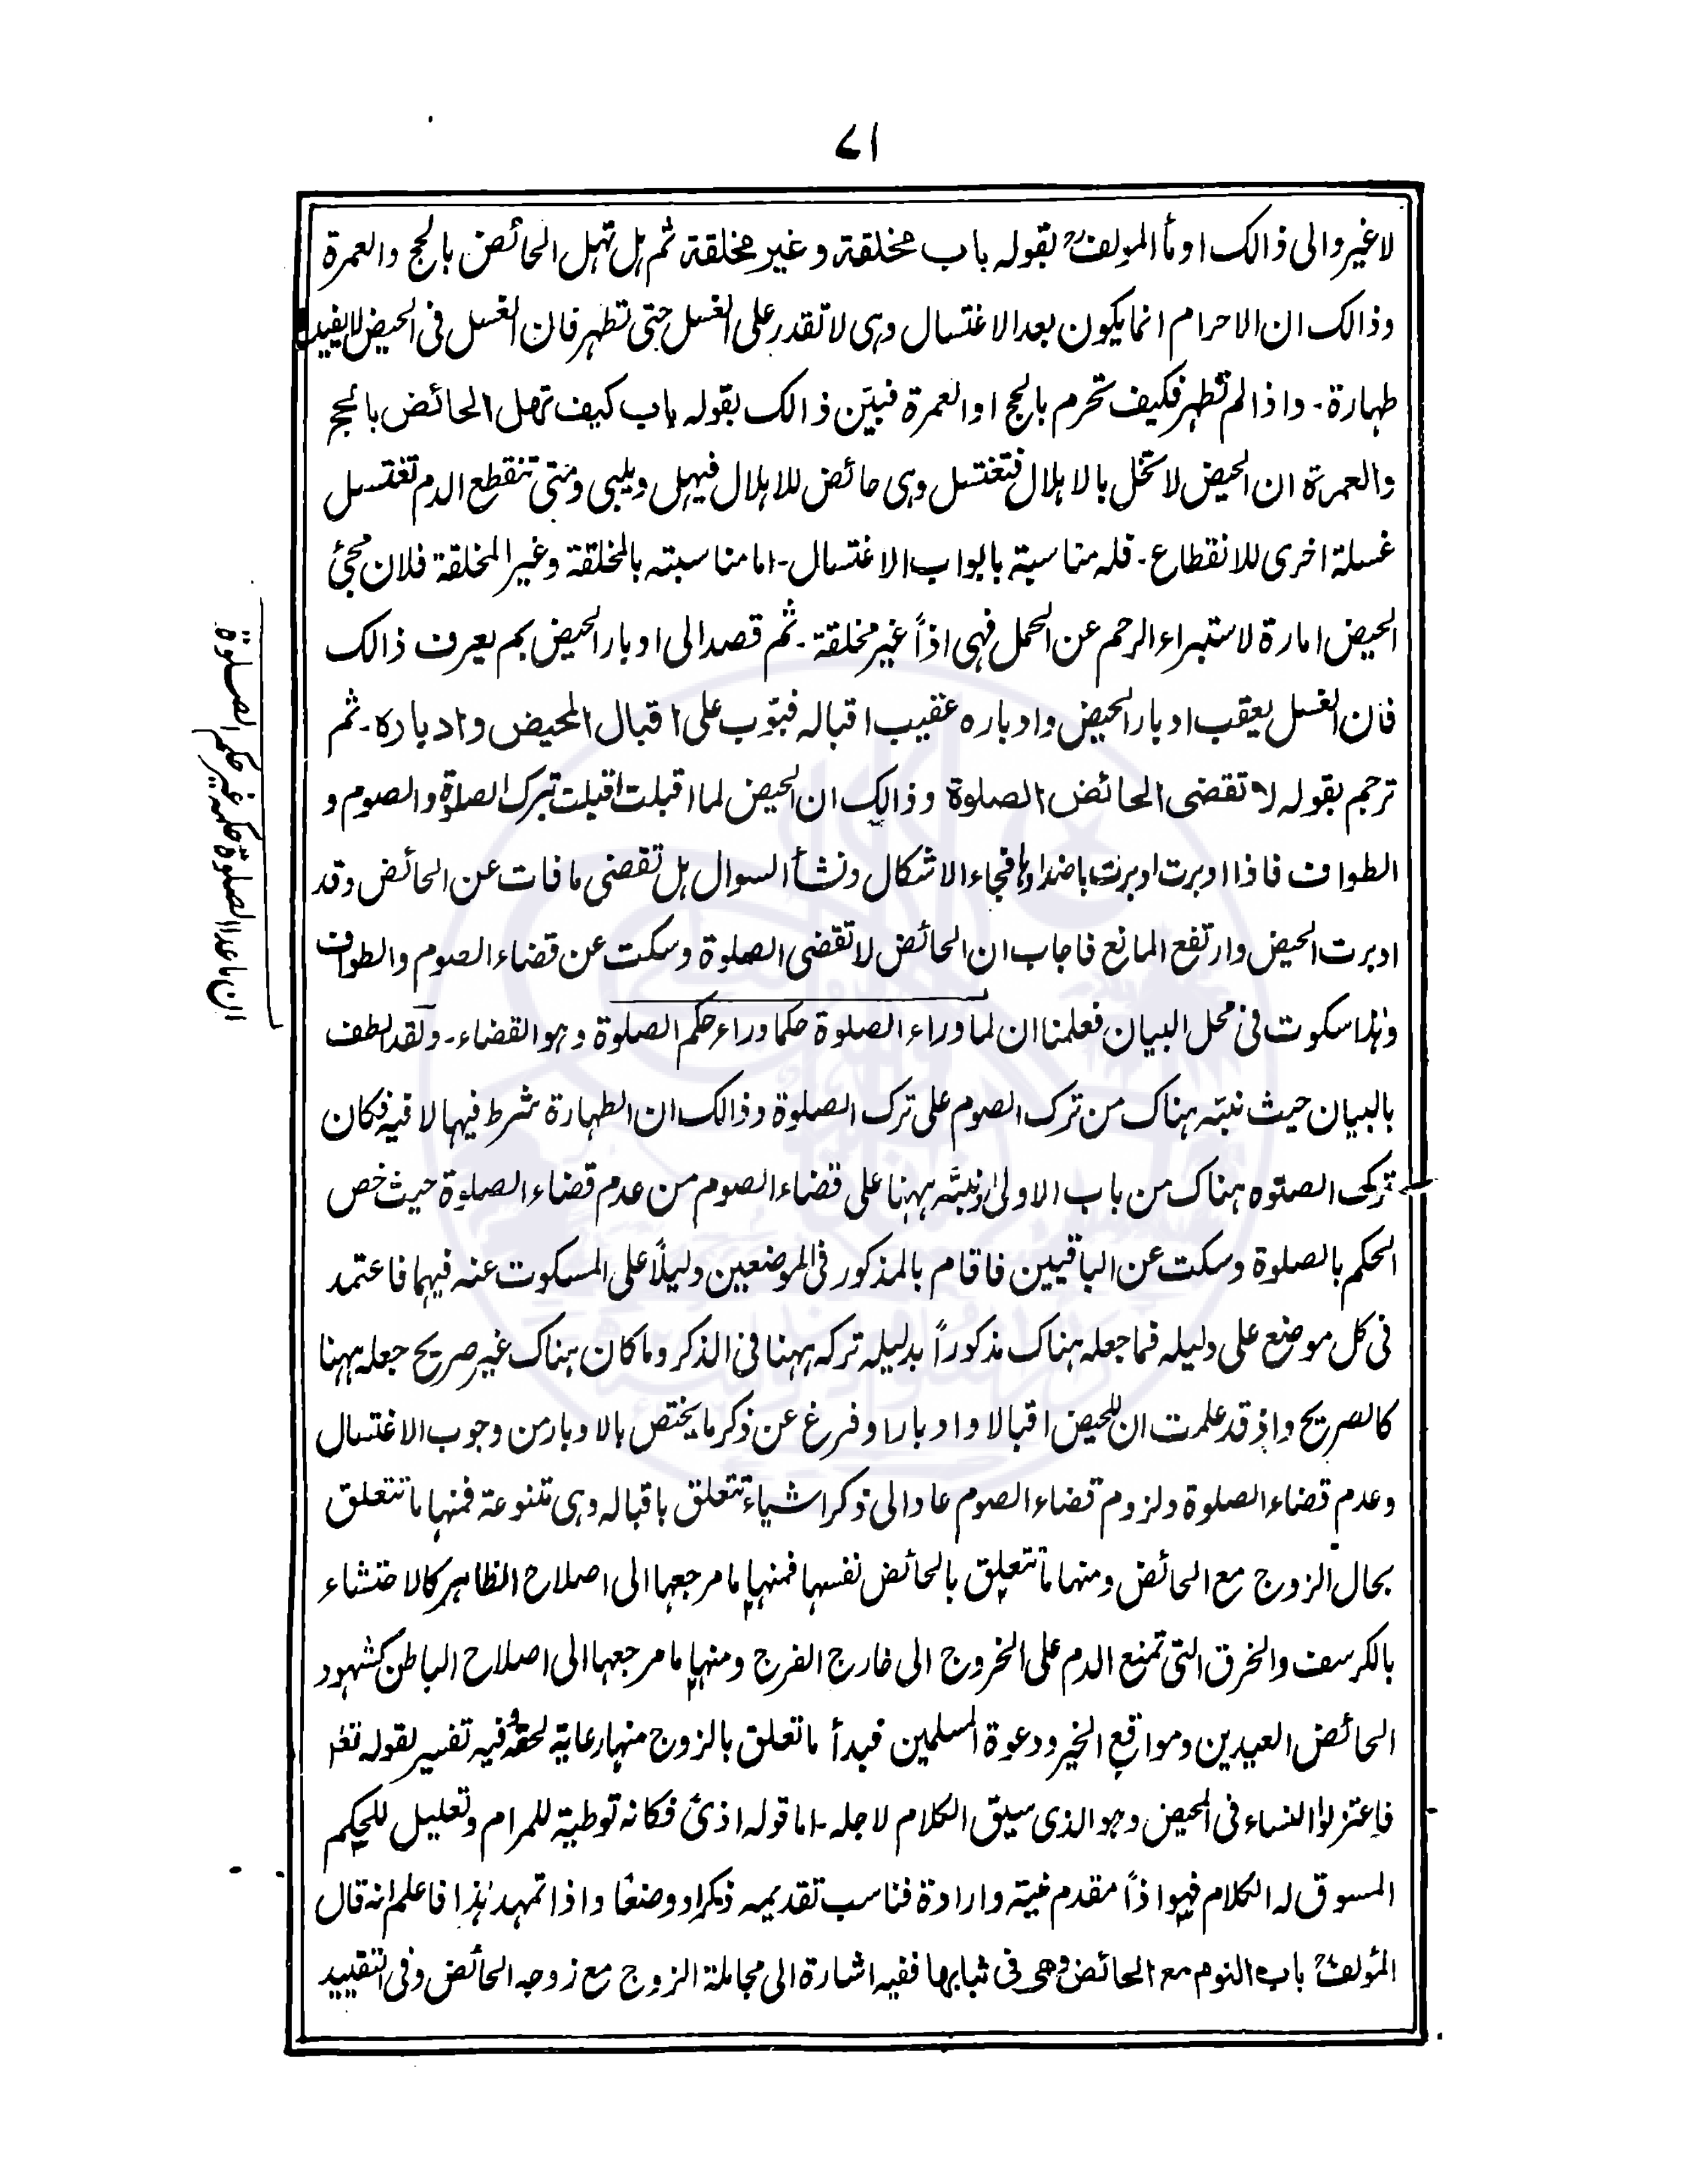 ۷۱
لا غير والى ذالك اومأ المولفؒ بقوله باب مخلقة وغير مخلقة ثم هل تهل الحائض بالحج والعمرة
وذالك ان الاحرام انما يكون بعد الاغتسال وهى لا تقدر على الغسل حتى تطهر فان الغسل فى الحيض لا يفيد
طهارة۔ واذا لم تطهر فكيف تحرم بالحج او العمرة فبيّن ذالك بقوله باب كيف تهل الحائض بالحج
والعمرة ان الحيض لا تخل بالاهلال فتغتسل وهى حائض للاهلال فيهل ويلبى ومتى تنقطع الدم تغتسل
غسلة اخرى للانقطاع۔ فله مناسبة بابواب الاغتسال۔ اما مناسبته بالمخلقة وغير المخلقة فلان مجئ
الحيض امارة لاستبراء الرحم عن الحمل فهى اذاً غير مخلقة۔ ثم قصد الى ادبار الحيض بم يعرف ذالك
فان الغسل يعقب ادبار الحيض وادباره عقيب اقباله فبوّب على اقبال المحيض وادباره۔ ثم
ترجم بقوله لا تقضى الحائض الصلوة وذالك ان الحيض لما اقبلت اقبلت بترك الصلوة والصوم و
الطواف فاذا ادبرت ادبرت باضدادها فجاء الاشكال ونشأ السوال هل تقضى ما فات عن الحائض وقد
ادبرت الحيض وارتفع المانع فاجاب ان الحائض لا تقضى الصلوة وسكت عن قضاء الصوم والطواف
وهذا سكوت فى محل البيان فعلمنا ان لما وراء الصلوة حكما وراء حكم الصلوة وهو القضاء۔ ولقد لطف
بالبيان حيث نبّه هناك من ترك الصوم على ترك الصلوة وذالك ان الطهارة شرط فيها لا فيه فكان
ترك الصلوه هناك من باب الاولىٰ ونبّه ههنا على قضاء الصوم من عدم قضاء الصلوة حيث خص
الحكم بالصلوة وسكت عن الباقيين فاقام بالمذكور فى الموضعين دليلاً على المسكوت عنه فيهما فاعتمد
فى كل موضع على دليله فما جعله هناك مذكوراً بدليله تركه ههنا فى الذكر وما كان هناك غير صريح جعله ههنا
كالصريح واذ قد علمت ان للحيض اقبالا وادبارا وفرغ عن ذكر ما يختص بالادبار من وجوب الاغتسال
وعدم قضاء الصلوة ولزوم قضاء الصوم عاد الى ذكر اشياء تتعلق باقباله وهى متنوعة فمنها ما تتعلق
بحال الزوج مع الحائض ومنها ما تتعلق بالحائض نفسها فمنها ما مرجعها الى اصلاح الظاهر كالاحتشاء
بالكرسف والخرق التى تمنع الدم على الخروج الى خارج الفرج ومنها ما مرجعها الى اصلاح الباطن كشهود
الحائض العيدين ومواقع الخير ودعوة المسلمين فبدأ ما تعلق بالزوج منها رعاية لحقه وفيه تفسير لقوله تعا
فاعتزلوا النساء فى المحيض وهو الذى سيق الكلام لاجله۔ اما قوله اذىً فكانه توطية للمرام وتعليل للحكم
المسوق له الكلام فهو اذاً مقدم نية وارادة فناسب تقديمه ذكرا ووضعا واذا تمهد هذا فاعلم انه قال
المؤلفؒ باب النوم مع الحائض وهى فى ثيابها ففيه اشارة الى مجاملة الزوج مع زوجه الحائض وفى التقييد
ان ما عدا الصلوة حكمه غير حكم الصلوة